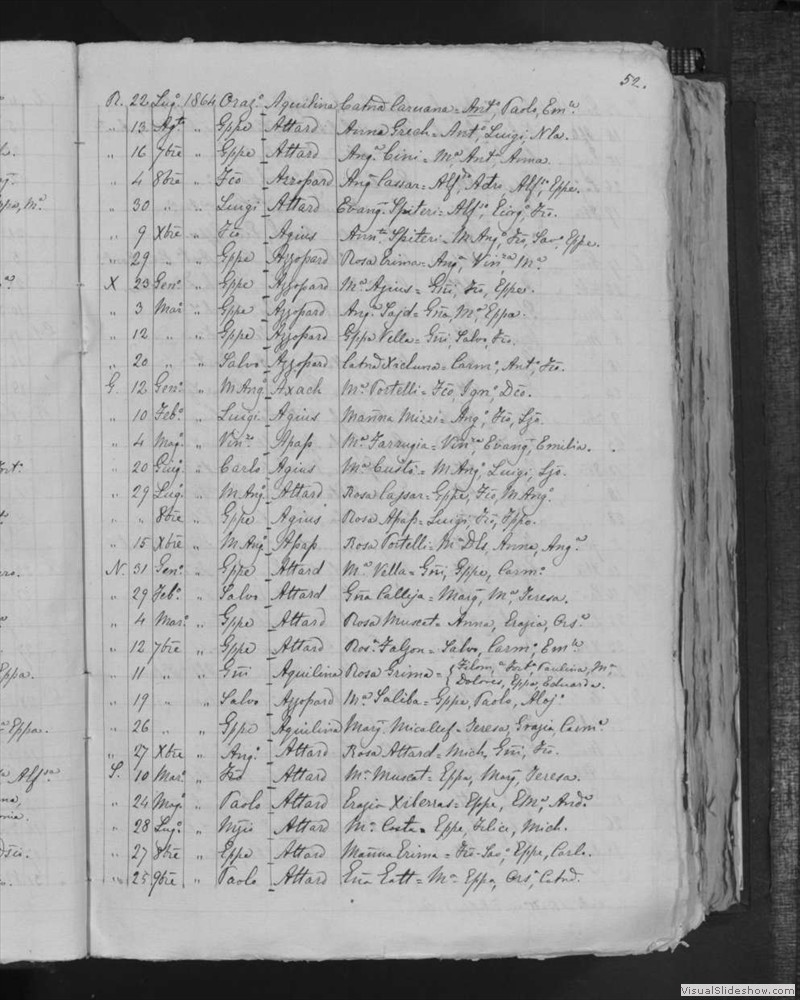 52.
R. 22 Lug.º 1864 Oraz.º Aquilina Catnᵈ Caruana = Antº, Paolo, Emª
" 13 Agtº " Gppe Attard Anna Grech = Antº, Luigi, Nla.
" 16 7bre " Gppe Attard Angª Cini = Mª Antª Anna
" 4 8bre " Fco Azzopard Angª Cassar = Alfº, Adro, Alfª, Eppe.
" 30 " " Luigi Attard Evangª Spiteri = Alfº, Giorgº, Fco.
" 9 Xbre " Fco Agius Annᵗᵃ Spiteri = M Angº, Fco, Savº, Eppe.
" 29 " " Gppe Azzopard Rosa Grima = Angª, Vinᶻᵃ, Mª
X 23 Genº " Gppe Azzopard Mª Agius = Gñi, Fco, Eppe.
" 3 Mar " Gppe Azzopard Angª Sajd = Gña, Mª, Eppa.
" 12 " " Gppe Azzopard Gppa Vella = Gñi, Salvº, Fco.
" 20 " " Salvº Azzopard Catnᵈ Xicluna = Carmº, Antº, Fco.
G. 12 Genº " M Angº Axach Mª Portelli = Fco, Ignº, Dco.
" 10 Febº " Luigi Agius Marina Mizzi = Angº, Fco, Ljo.
" 4 Magº " Vinᶻᵒ Apap Mª Farrugia = Vinᶻᵃ, Evangª, Emilia.
" 20 Giugº " Carlo Agius Mª Custi = M Angº, Luigi, Ljo.
" 29 Lugº " M Angº Attard Rosa Cassar = Gppe, Fco, M Angº
" " 8bre " Gppe Agius Rosa Apap = Luigi, Fco,
" 15 Xbre " M Angº Apap Rosa Portelli = Mª Dls, Anna, Angª
N. 31 Genº " Gppe Attard Mª Vella = Gñi, Gppe, Carmº
" 29 Febº " Salvo Attard Gña Calleja = Margª, Mª Teresa.
" 4 Marº " Gppe Attard Rosa Muscat = Anna, Grazia, Orsª
" 12 7bre " Gppe Attard Rosª Falzon = Salvo, Carmº, Emª
" 11 " " Gñi Aquilina Rosa Grima = { Filomª, Fortª, Paulina, Mª,
Dolores, Eppa, Eduarda.
" 19 " " Salvo Azzopard Mª Saliba = Gppe, Paolo, Alojº
" 26 " " Gppe Aquilina Margª Micallef = Teresa, Grazia, Carmª
" 27 Xbre " Angº Attard Rosa Attard = Mich, Gñi, Fco.
S. 10 Marº " Fco Attard Mª Muscat = Eppa, Margª, Teresa.
" 24 Magº " Paolo Attard Grazia Xiberras = Eppe, EMª, Andª
" 28 Lugº " Attard Mª Costa = Eppe, Felice, Mich.
" 27 8bre " Eppe Attard Marina Grima = Fco-Savº, Eppe, Carlo.
" 25 9bre " Paolo Attard Gña Gatt = Mª Eppa, Orsª, Catnᵈ.
VisualSlideshow.com